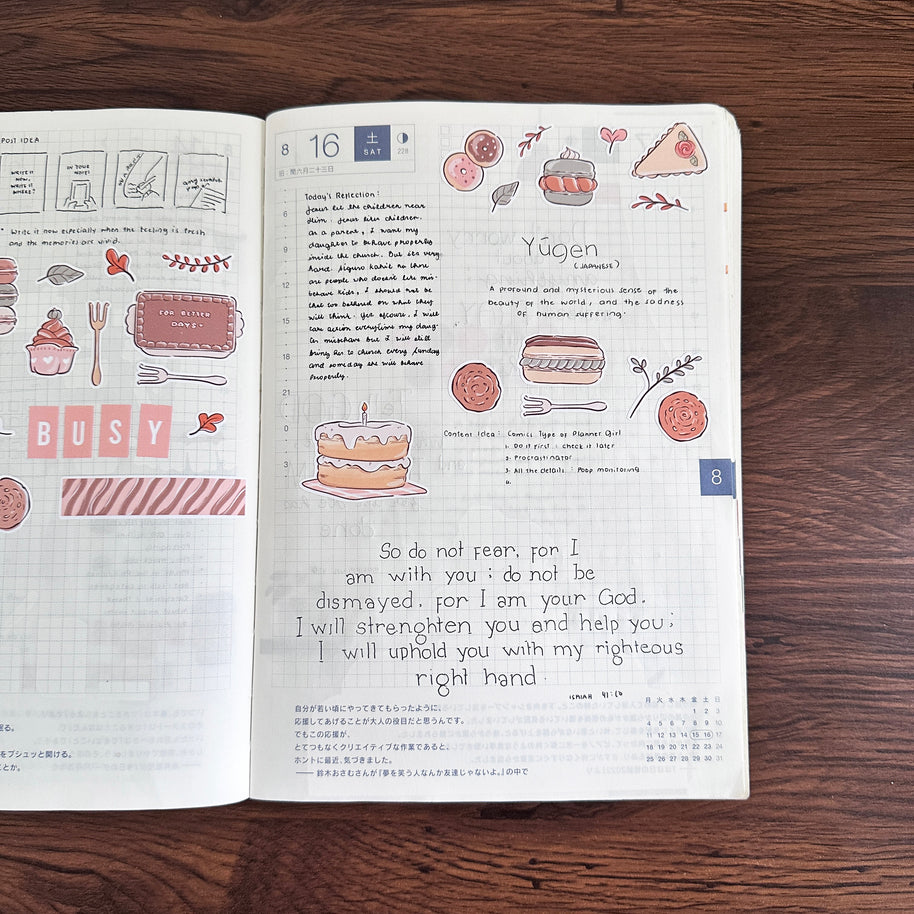 POST IDEA
WRITE IT NOW. WRITE IT WHERE?
IN YOUR NOTES
ANY SCRATCH PAPER
* Write it now especially when the feeling is fresh
and the memories are vivid.
FOR BETTER
DAYS.
BUSY
眠る。
をプシュッと開ける。
ことか。
8 16 土 SAT
228
旧:閏六月二十三日
6
9
12
15
18
21
0
3
Today's Reflection:
Jesus let the children near
Him. Jesus likes children.
As a parent, I want my
daughter to behave properly
inside the church. But its very
hard. Siguro kahit na there
are people who doesn't like mis-
behave kids, I should not be
that too bothered on what they
will think. Yes ofcourse, I will
take action everytime my daug-
ter mischave but I will still
bring her to church every Sunday
and someday she will behave
properly.
Yūgen
(JAPANESE)
A profound and mysterious sense of the
beauty of the world, and the sadness
of human suffering.
Content Idea: Comics Type of Planner Girl
1. Do it first, check it later
2. Procrastinator
3. All the details. : Poop monitoring
4.
8
So do not fear, for I
am with you; do not be
dismayed, for I am your God.
I will strenghten you and help you;
I will uphold you with my righteous
right hand.
ISAIAH 41:10
自分が若い頃にやってきてもらったように、
応援してあげることが大人の役目だと思うんです。
でもこの応援が、
とてつもなくクリエイティブな作業であると、
ホントに最近、気づきました。
── 鈴木おさむさんが『夢を笑う人なんか友達じゃないよ。』の中で
月 火 水 木 金 土 日
1 2 3
4 5 6 7 8 9 10
11 12 13 14 15 16 17
18 19 20 21 22 23 24
25 26 27 28 29 30 31